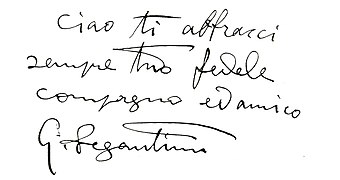 ciao ti abbracci
sempre tuo fedele
compagno ed amico
G. Segantini